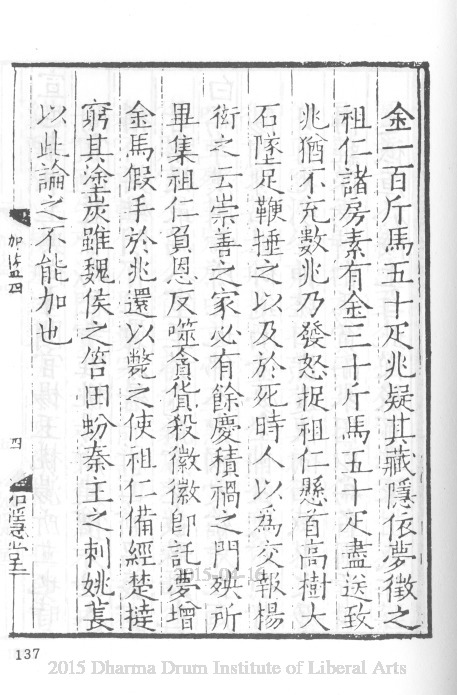 金一百斤馬五十疋兆疑其藏隱依夢徵之
祖仁諸房素有金三十斤馬五十疋盡送致
兆猶不充數兆乃發怒捉祖仁懸首高樹大
石墜足鞭捶之以及於死時人以爲交報楊
衒之云崇善之家必有餘慶積禍之門殃所
畢集祖仁負恩反噬貪貨殺徽徽卽託夢增
金馬假手於兆還以斃之使祖仁備經楚撻
窮其塗炭雖魏侯之笞田蚡秦主之刺姚萇
以此論之不能加也
伽藍四
四
如隱堂
137
2015 Dharma Drum Institute of Liberal Arts